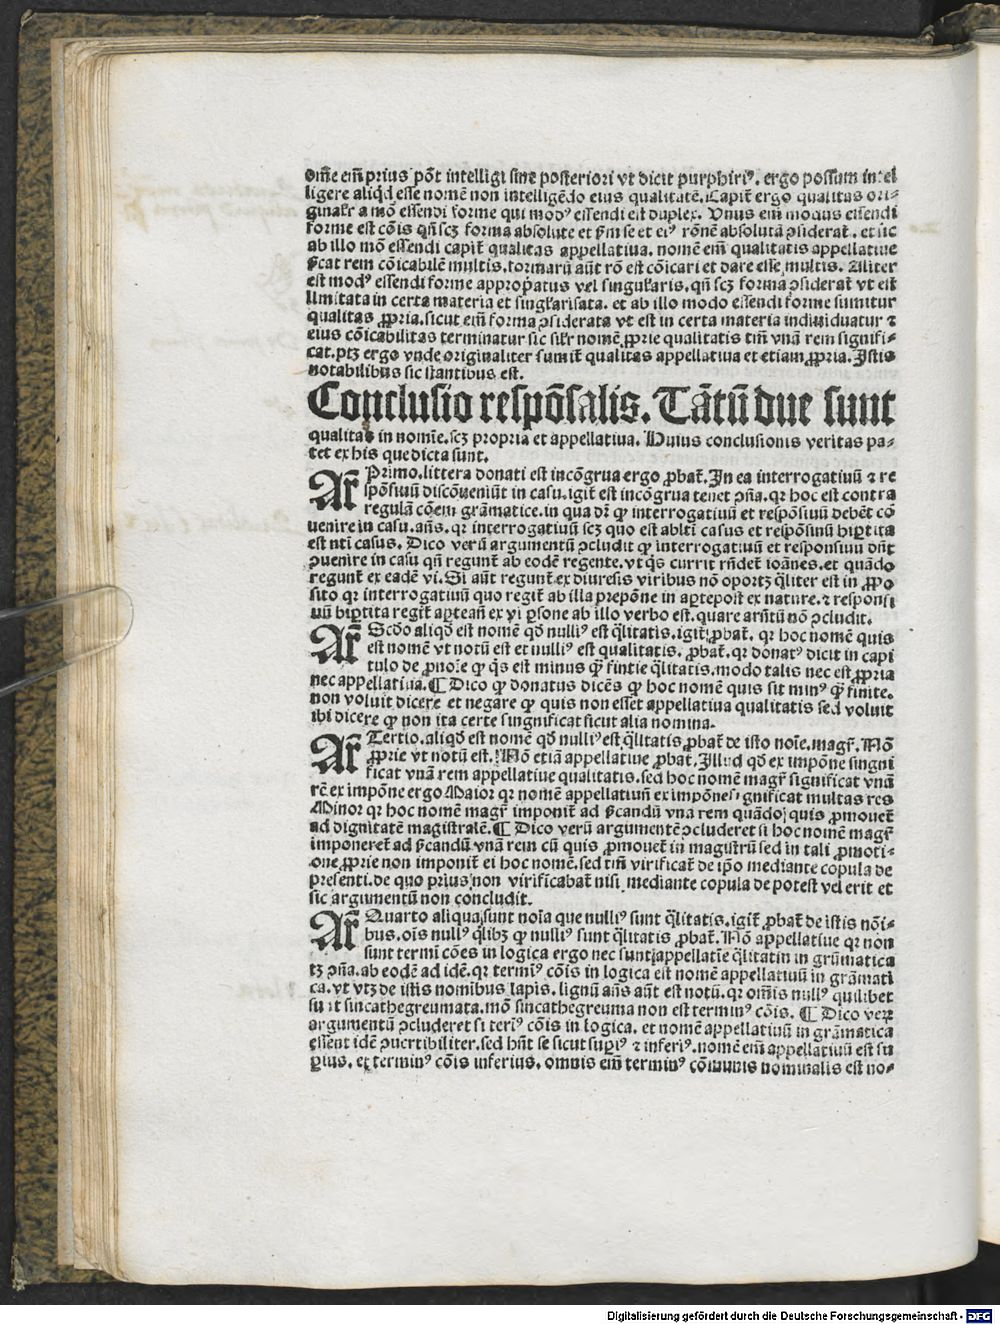 om̄e em̄ prius pōt intelligi sine posteriori vt dicit purphiriꝰ. ergo possum intel
ligere aliqd̄ esse nomē non intelligēdo eius qualitatē. Capit̄ ergo qualitas ori⸗
ginalr̄ a mō essendi forme qui modꝰ essendi est duplex. Vnus em̄ modus essendi
forme est cōis qn̄ scꝫ forma absolute et ꝑm se et eiꝰ rōnē absolutā ꝯsiderat̄. et sic
ab illo mō essendi capit̄ qualitas appellatiua. nomē em̄ qualitatis appellatiue
ꝑcat rem cōicabilē multis. formarū aūt rō est cōicari et dare esse multis. Aliter
est modꝰ essendi forme appropatus vel singularis. qn̄ scꝫ forma ꝯsiderat̄ vt est
limitata in certa materia et singlarisata. et ab illo modo essendi forme sumitur
qualitas ꝓpria. sicut em̄ forma ꝯsiderata vt est in certa materia indiuiduatur ⁊
eius cōicabilitas terminatur sic silr̄ nomē ꝓprie qualitatis tm̄ vnā rem signifi⸗
cat. ptꝫ ergo vnde originaliter sumit̄ qualitas appellatiua et etiam ꝓpria. Istis
notabilibus sic stantibus est.
Conclusio respōsalis. Tātū due sunt
qualitas in nomīe. scꝫ propria et appellatiua. Huius conclusionis veritas pa⸗
tet ex his que dicta sunt.
Ar̄ Primo. littera donati est incōgrua ergo ꝓbat̄. In ea interrogatiuū ⁊ re
spōsiuū discōueniūt in casu. igit̄ est incōgrua tenet ꝯn̄a. qꝛ hoc est contra
regulā cōem grāmatice. in qua dr̄ ꝙ interrogatiuū et respōsiuū debēt cō
uenire in casu. an̄s. qꝛ interrogatiuū scꝫ quo est ablti casus et respōsiuū bip̄tita
est nti casus. Dico verū argumentū ꝯcludit ꝙ interrogatiuū et responsiuū dn̄t
ꝯuenire in casu qn̄ regunt̄ ab eodē regente. vt qs̄ currit rn̄det̄ ioānes. et quādo
regunt̄ ex eadē vi. Si aūt regunt̄ ex diuersis viribus nō oportꝫ qliter est in ꝓpo
sito qꝛ interrogatiuū quo regit̄ ab illa prepōne in aꝑte post ex nature. ⁊ responsi
uū biꝑtita regit̄ aꝑte an̄ ex vi ꝑsone ab illo verbo est. quare arn̄tū nō ꝯcludit.
Ar̄ Scdo aliqd̄ est nomē qd̄ nulliꝰ est qlitatis. igit̄ ꝓbat̄. qꝛ hoc nomē quis
est nomē vt notū est et nulliꝰ est qualitatis. ꝓbat̄. qꝛ donatꝰ dicit in capi
tulo de ꝓnoīe ꝙ qs̄ est minus ꝙ̄ finitie qlitatis. modo talis nec est ꝓpria
nec appellatiua. ¶ Dico ꝙ donatus dicēs ꝙ hoc nomē quis sit minꝰ ꝙ̄ finite.
non voluit dicere et negare ꝙ quis non esset appellatiua qualitatis sed voluit
ibi dicere ꝙ non ita certe singnificat sicut alia nomina.
Ar̄ Tertio. aliqd̄ est nomē qd̄ nulliꝰ est qlitatis ꝓbat̄ de isto noīe. magr̄. Nō
ꝓprie vt notū est. Nō etiā appellatiue ꝓbat̄. Illud qd̄ ex impōne singni
ficat vnā rem appellatiue qualitatis. sed hoc nomē magr̄ significat vnū
rē ex impōne ergo Maior qꝛ nomē appellatiuū ex impōne significat multas res
Minor qꝛ hoc nomē magr̄ imponit̄ ad ꝑcandū vna rem quādo quis ꝓmouet̄
ad dignitatē magistralē. ¶ Dico verū argumentē ꝯcluderet si hoc nomē magr̄
imponeret̄ ad ꝑcandū vnā rem cū quis ꝓmouet̄ in magistrū sed in tali ꝓmoti⸗
one ꝓprie non imponit̄ ei hoc nomē. sed tm̄ virificat̄ de ip̄o mediante copula de
presenti. de quo prius non virificabat̄ nisi mediante copula de potest vel erit et
sic argumentū non concludit.
Ar̄ Quarto aliqua sunt noīa que nulliꝰ sunt qlitatis. igit̄ ꝓbat̄ de istis nōi⸗
bus. oīs nullꝰ qlibꝫ ꝙ nulliꝰ sunt qlitatis ꝓbat̄. Nō appellatiue qꝛ non
sunt termī cōes in logica ergo nec sunt appellatīe qlitatin in grāmatica
tꝫ ꝯn̄a. ab eodē ad idē. qꝛ termīꝰ cōis in logica est nomē appellatiuū in grāmati
ca. vt vtꝫ de istis nomibus lapis. lignū an̄s aūt est notū. qꝛ om̄is nullꝰ quilibet
sunt sincathegreumata. mō sincathegreuma non est terminꝰ cōis. ¶ Dico verū
argumentū ꝯcluderet si terīꝰ cōis in logica. et nomē appellatiuū in grāmatica
essent idē ꝯuertibiliter. sed hn̄t se sicut suꝑiꝰ ⁊ inferiꝰ. nomē em̄ appellatiuū est su
ꝑius. et terminꝰ cōis inferius. omnis em̄ terminꝰ cōmunis nominalis est no⸗
Digitalisierung gefördert durch die Deutsche Forschungsgemeinschaft - DFG